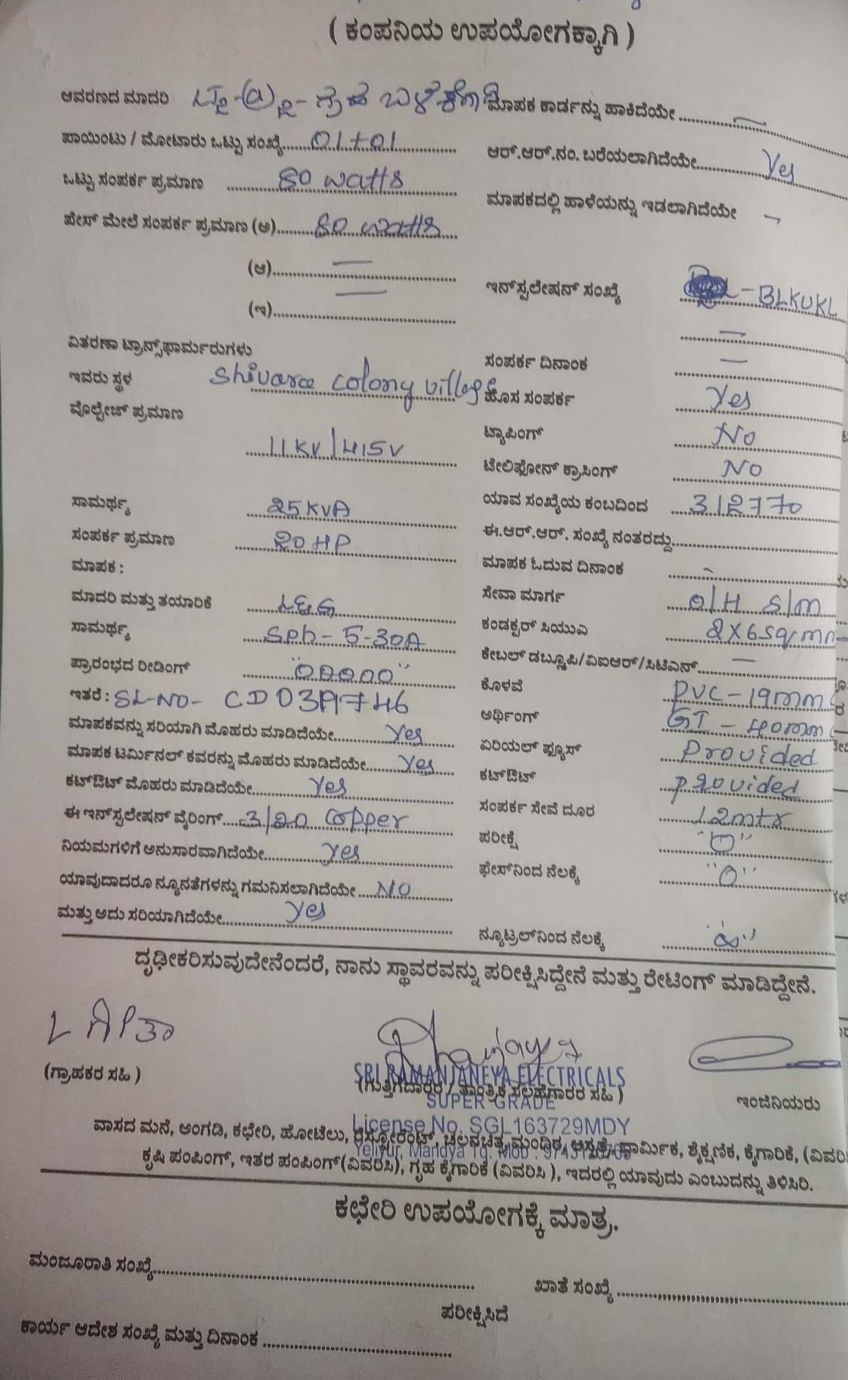 ( ಕಂಪನಿಯ ಉಪಯೋಗಕ್ಕಾಗಿ )
ಆವರಣದ ಮಾದರಿ ಮಾಪಕ ಕಾರ್ಡನ್ನು ಹಾಕಿದೆಯೇ ........ —
ಪಾಯಿಂಟು / ಮೋಟಾರು ಒಟ್ಟು ಸಂಖ್ಯೆ...... 01+01 ಆರ್.ಆರ್.ನಂ. ಬರೆಯಲಾಗಿದೆಯೇ........ Yes
ಒಟ್ಟು ಸಂಪರ್ಕ ಪ್ರಮಾಣ ........ 80 watts ಮಾಪಕದಲ್ಲಿ ಹಾಳೆಯನ್ನು ಇಡಲಾಗಿದೆಯೇ
ಪೇಸ್ ಮೇಲೆ ಸಂಪರ್ಕ ಪ್ರಮಾಣ (ಅ)........ 80 watts
(ಆ)........ — ಇನ್‌ಸ್ಪಲೇಷನ್ ಸಂಖ್ಯೆ - BLKUKL
(ಇ)........ — —
ವಿತರಣಾ ಟ್ರಾನ್ಸ್‌ಫಾರ್ಮರುಗಳು ಸಂಪರ್ಕ ದಿನಾಂಕ —
ಇವರು ಸ್ಥಳ colony village ಹೊಸ ಸಂಪರ್ಕ Yes
ವೊಲ್ಟೇಜ್ ಪ್ರಮಾಣ 11KV/415V ಟ್ಯಾಪಿಂಗ್ No
ಟೇಲಿಫೋನ್ ಕ್ರಾಸಿಂಗ್ NO
ಸಾಮರ್ಥ್ಯ 25KVA ಯಾವ ಸಂಖ್ಯೆಯ ಕಂಬದಿಂದ
ಸಂಪರ್ಕ ಪ್ರಮಾಣ 20 HP ಈ.ಆರ್.ಆರ್. ಸಂಖ್ಯೆ ನಂತರದ್ದು........
ಮಾಪಕ : ಮಾಪಕ ಓದುವ ದಿನಾಂಕ
ಮಾದರಿ ಮತ್ತು ತಯಾರಿಕೆ L&G ಸೇವಾ ಮಾರ್ಗ O/H S/m
ಸಾಮರ್ಥ್ಯ Sph - 5-30A ಕಂಡಕ್ಟರ್ ಸಿಯುಎ 2X6Sq/mm
ಪ್ರಾರಂಭದ ರೀಡಿಂಗ್ "00000" ಕೇಬಲ್ ಡಬ್ಲ್ಯೂಪಿ/ವಿಐಆರ್/ಸಿಟಿಎಸ್........ —
ಇತರೆ : SL-NO- CD03A746 ಕೊಳವೆ PVC - 19mm
ಮಾಪಕವನ್ನು ಸರಿಯಾಗಿ ಮೊಹರು ಮಾಡಿದೆಯೇ........ Yes ಅರ್ಥಿಂಗ್ GI - 40mm
ಮಾಪಕ ಟರ್ಮಿನಲ್ ಕವರನ್ನು ಮೊಹರು ಮಾಡಿದೆಯೇ..... Yes ಏರಿಯಲ್ ಫ್ಯೂಸ್ Provided
ಕಟ್‌ಔಟ್ ಮೊಹರು ಮಾಡಿದೆಯೇ........ Yes ಕಟ್‌ಔಟ್ provided
ಈ ಇನ್‌ಸ್ಪಲೇಷನ್ ವೈರಿಂಗ್.... 3/20 Copper ಸಂಪರ್ಕ ಸೇವೆ ದೂರ 12mtr
ನಿಯಮಗಳಿಗೆ ಅನುಸಾರವಾಗಿದೆಯೇ........ Yes ಪರೀಕ್ಷೆ "0"
ಯಾವುದಾದರೂ ನ್ಯೂನತೆಗಳನ್ನು ಗಮನಿಸಲಾಗಿದೆಯೇ.... NO ಫೇಸ್‌ನಿಂದ ನೆಲಕ್ಕೆ "0"
ಮತ್ತು ಅದು ಸರಿಯಾಗಿದೆಯೇ........ Yes ನ್ಯೂಟ್ರಲ್‌ನಿಂದ ನೆಲಕ್ಕೆ
ದೃಢೀಕರಿಸುವುದೇನೆಂದರೆ, ನಾನು ಸ್ಥಾವರವನ್ನು ಪರೀಕ್ಷಿಸಿದ್ದೇನೆ ಮತ್ತು ರೇಟಿಂಗ್ ಮಾಡಿದ್ದೇನೆ.
(ಗ್ರಾಹಕರ ಸಹಿ ) SRI RAMANJANEYA ELECTRICALS
(ಗುತ್ತಿಗೆದಾರರ / ತಾಂತ್ರಿಕ ಸಲಹೆಗಾರರ ಸಹಿ ) ಇಂಜಿನಿಯರು
SUPER GRADE
License No. SGL163729MDY
Yeliyur, Mandya Tq. Mob :
ವಾಸದ ಮನೆ, ಅಂಗಡಿ, ಕಛೇರಿ, ಹೋಟೆಲು, ರೆಸ್ಟೋರೆಂಟ್, ಚಲನಚಿತ್ರ ಮಂದಿರ, ಆಸ್ಪತ್ರೆ, ಧಾರ್ಮಿಕ, ಶೈಕ್ಷಣಿಕ, ಕೈಗಾರಿಕೆ, (ವಿವರಿಸಿ
ಕೃಷಿ ಪಂಪಿಂಗ್, ಇತರ ಪಂಪಿಂಗ್(ವಿವರಿಸಿ), ಗೃಹ ಕೈಗಾರಿಕೆ (ವಿವರಿಸಿ ), ಇದರಲ್ಲಿ ಯಾವುದು ಎಂಬುದನ್ನು ತಿಳಿಸಿರಿ.
ಕಛೇರಿ ಉಪಯೋಗಕ್ಕೆ ಮಾತ್ರ.
ಮಂಜೂರಾತಿ ಸಂಖ್ಯೆ........ ಖಾತೆ ಸಂಖ್ಯೆ ........
ಪರೀಕ್ಷಿಸಿದೆ
ಕಾರ್ಯ ಆದೇಶ ಸಂಖ್ಯೆ ಮತ್ತು ದಿನಾಂಕ ........